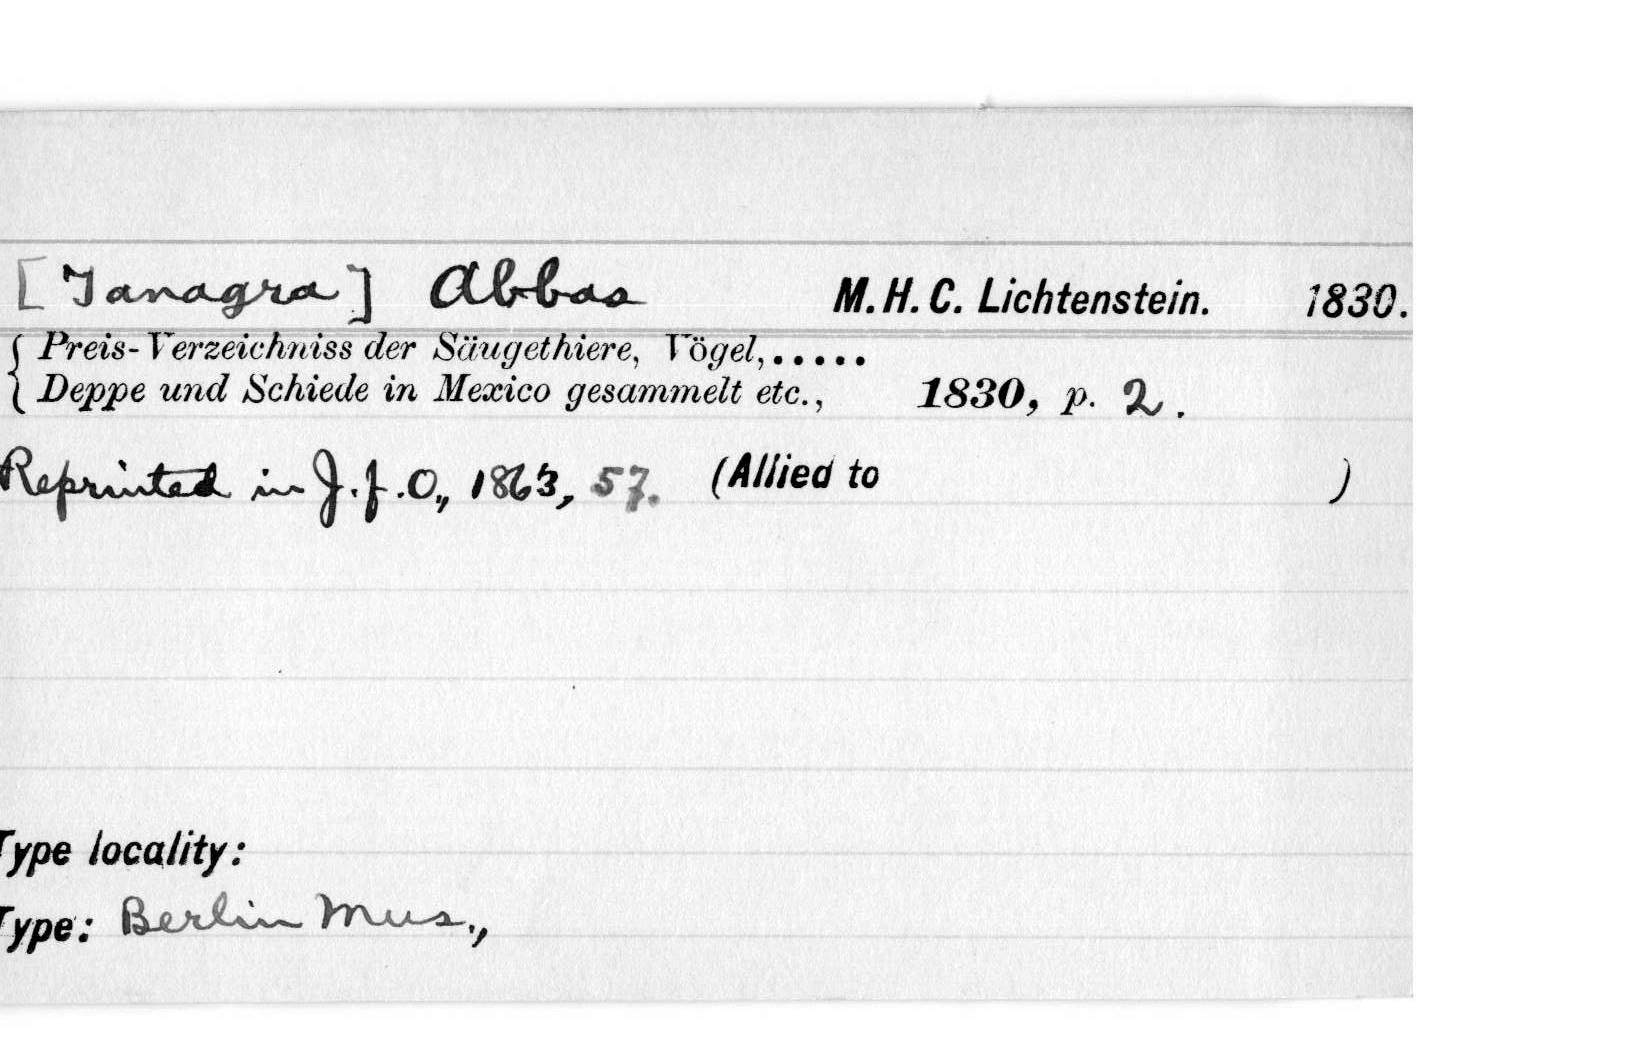 [Tanagra] Abbas M. H. C. Lichtenstein. 1830.
{ Preis-Verzeichniss der Säugethiere, Vögel,.....
{ Deppe und Schiede in Mexico gesammelt etc., 1830, p. 2.
Reprinted in J.f.O., 1863, 57. (Allied to )
Type locality:
Type: Berlin Mus.,